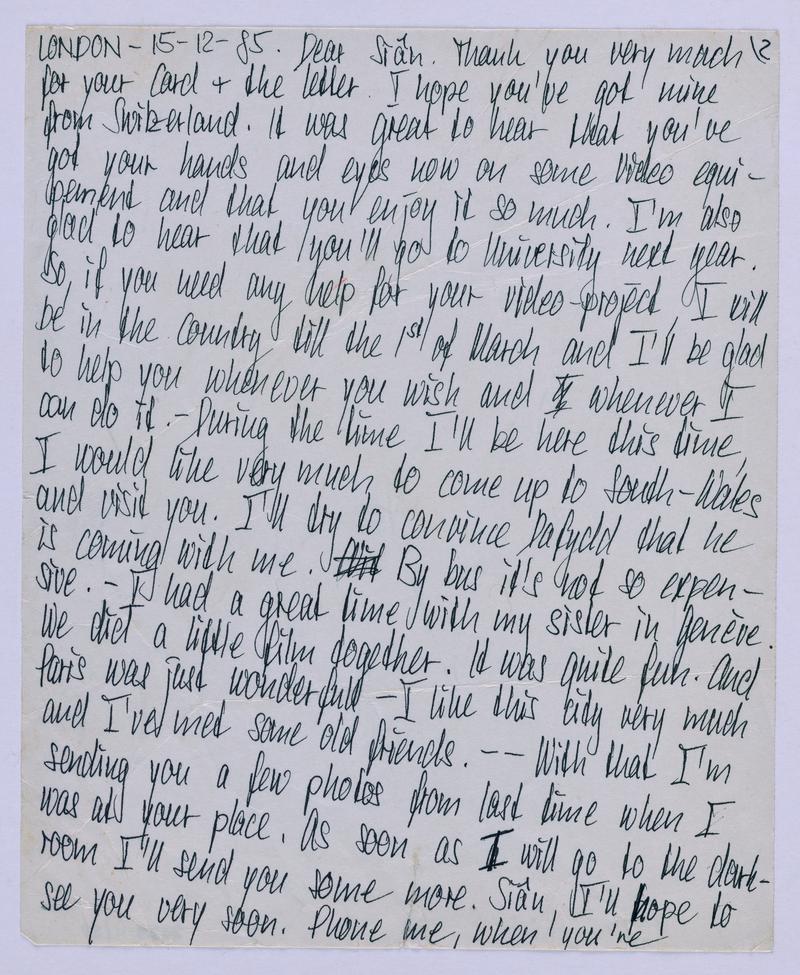 LONDON - 15-12-85. Dear Siân. Thank you very much 12
for your Card + the letter. I hope you've got mine
from Switzerland. It was great to hear that you've
got your hands and eyes now on some video equi-
pement and that you enjoy it so much. I'm also
glad to hear that you'll go to University next year.
So, if you need any help for your video-project, I will
be in the country till the 1st of March and I'll be glad
to help you whenever you wish and whenever I
can do it. - During the time I'll be here this time,
I would like very much to come up to South-Wales
and visit you. I'll try to convince Dafydd that he
is coming with me. By bus it's not so expen-
sive. - I had a great time with my sister in Genève.
We did a little film together. It was quite fun. And
Paris was just wonderfull - I like this city very much
and I've met some old friends. -- With that I'm
sending you a few photos from last time when I
was at your place. As soon as I will go to the dark-
room I'll send you some more. Siân, I'll hope to
see you very soon. Phone me, when you're